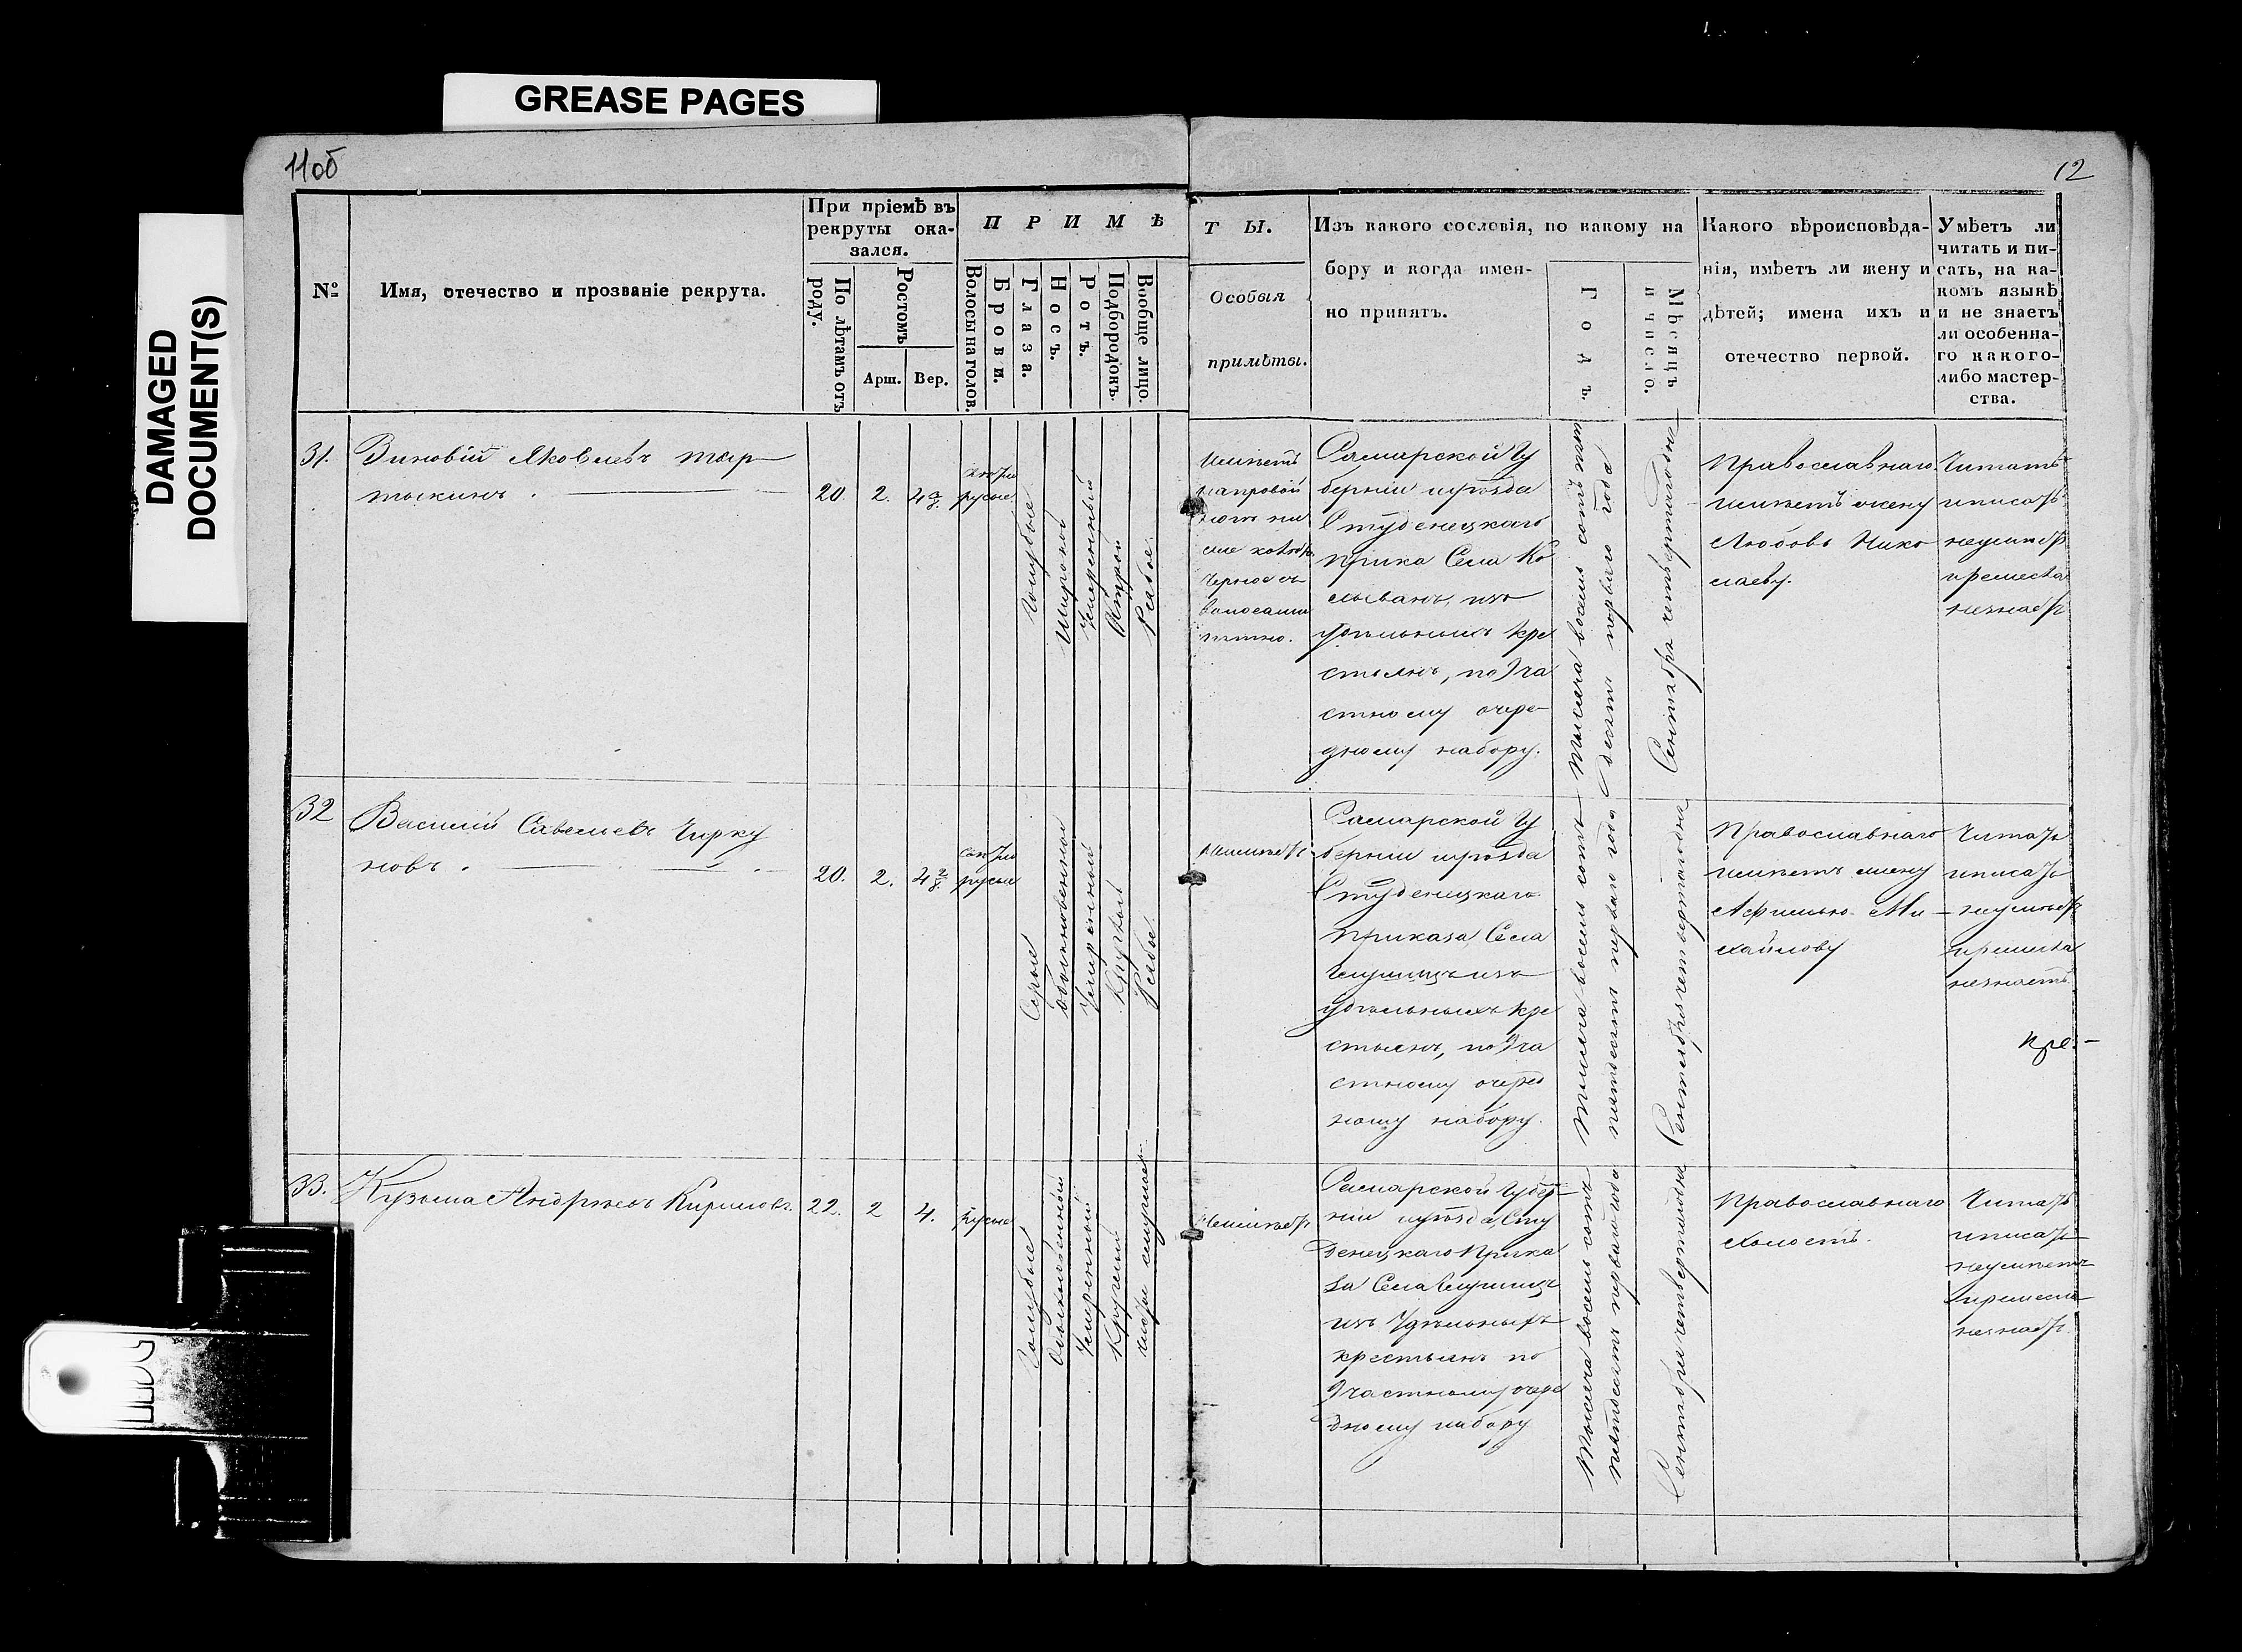 GREASE PAGES
DAMAGED
DOCUMENT(S)
11об
12
№
Имя, отечество и прозваніе рекрута.
При пріемѣ въ
рекруты ока-
зался.
По лѣтамъ отъ
роду.
Ростомъ
Арш.
Вер.
П Р И М Ѣ
Волосы на голов.
Брови.
Глаза.
Носъ.
Ротъ.
Подбородокъ.
Вообще лицо.
Т Ы.
Особыя
примѣты.
Изъ какого сословія, по какому на
бору и когда имен-
но принятъ.
Годъ.
Мѣсяцъ
и число.
Какого вѣроисповѣда-
нія, имѣетъ ли жену и
дѣтей; имена ихъ и
отечество первой.
Умѣетъ ли
читать и пи-
сать, на ка-
комъ языкѣ
и не знаетъ
ли особенна-
го какого-
либо мастер-
ства.
31.
Зиновій Яковлевъ
20.
2.
русые
Голубые
Широкій
Умеренный
Острой
Рябое.
Имѣетъ
на правой
черное съ
волосами
пятно.
Самарской Гу
берніи и уѣзда
Студенецкаго
Села Ко
лывань, изъ
удѣльныхъ кре
стьянъ, по 9 ча
стному очере-
дному набору.
Тысяча восемь сотъ пять
десятъ перваго года
Сентября четвертаго дня
Православнаго
имѣетъ жену
Любовь Нико
лаеву.
Читать
и писать
неумѣетъ
и ремесла
незнаетъ
32
Василій Савельевъ Чирку
новъ.
20.
2.
4 2/8.
русые
Серые
Обыкновенной
Умеренный
Круглый
Рябое.
Неимѣетъ
Самарской Гу
берніи и уѣзда
Студенецкаго
приказа Села
изъ
удѣльныхъ кре
стьянъ, по 9 ча
стному очеред
ному набору.
Тысяча восемь сотъ
пятьдесятъ перваго года
Сентября четвертаго дня
Православнаго
имѣетъ жену
Афимью Ми-
хайлову
Читать
и писать
неумѣетъ
и ремесла
незнаетъ
33.
Кузьма Андреевъ Кириловъ.
22.
2
4.
Русые
Голубые
Обыкновенный
Умеренный
Круглый
Неимѣетъ
Самарской Губер-
ніи и уѣзда, Сту
денецкаго Прика
за Села
изъ Удѣльныхъ
крестьянъ по
9 частному очере
дному набору
Тысяча восемь сотъ
пятьдесятъ перваго года
Сентября четвертаго дня
Православнаго
холостъ.
Читать
и писать
неумѣетъ
и ремесла
незнаетъ